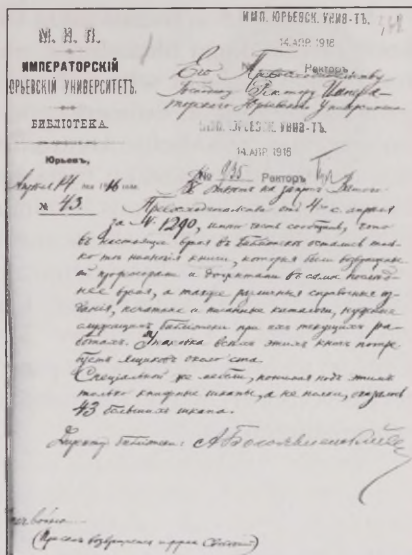 М. Н. П.
ИМПЕРАТОРСКІЙ
ЮРЬЕВСКІЙ УНИВЕРСИТЕТЪ.
БИБЛІОТЕКА.
Юрьевъ,
Апрѣля 14 дня 1916 года
№ 43.
ИМП. ЮРЬЕВСК. УНИВ-ТЪ.
14 АПР. 1916
№ Ректоръ
Его Превосходительству
Господину Ректору Импера-
торскаго Юрьевскаго Университета
ИМП. ЮРЬЕВСК. УНИВ-ТЪ.
14 АПР. 1916
№ 935 Ректоръ
Въ отвѣтъ на запросъ Вашего
Превосходительства отъ 4-го с. апрѣля
за № 1290, имѣю честь сообщить, что
въ настоящее время въ библіотекѣ остались толь-
ко тѣ книги, которыя были возвращены
профессорами и въ самое послѣд-
нее время, а также различныя справочныя из-
данія, печатные и каталоги, нужные
служащимъ библіотеки при ихъ текущихъ ра-
ботахъ. Упаковка всѣхъ этихъ книгъ потре-
буетъ ящиковъ около ста.
Спеціальной же мебели, понимая подъ этимъ
только книжные шкапы, а не полки, оказалось
43 большихъ шкапа.
Директоръ библіотеки: